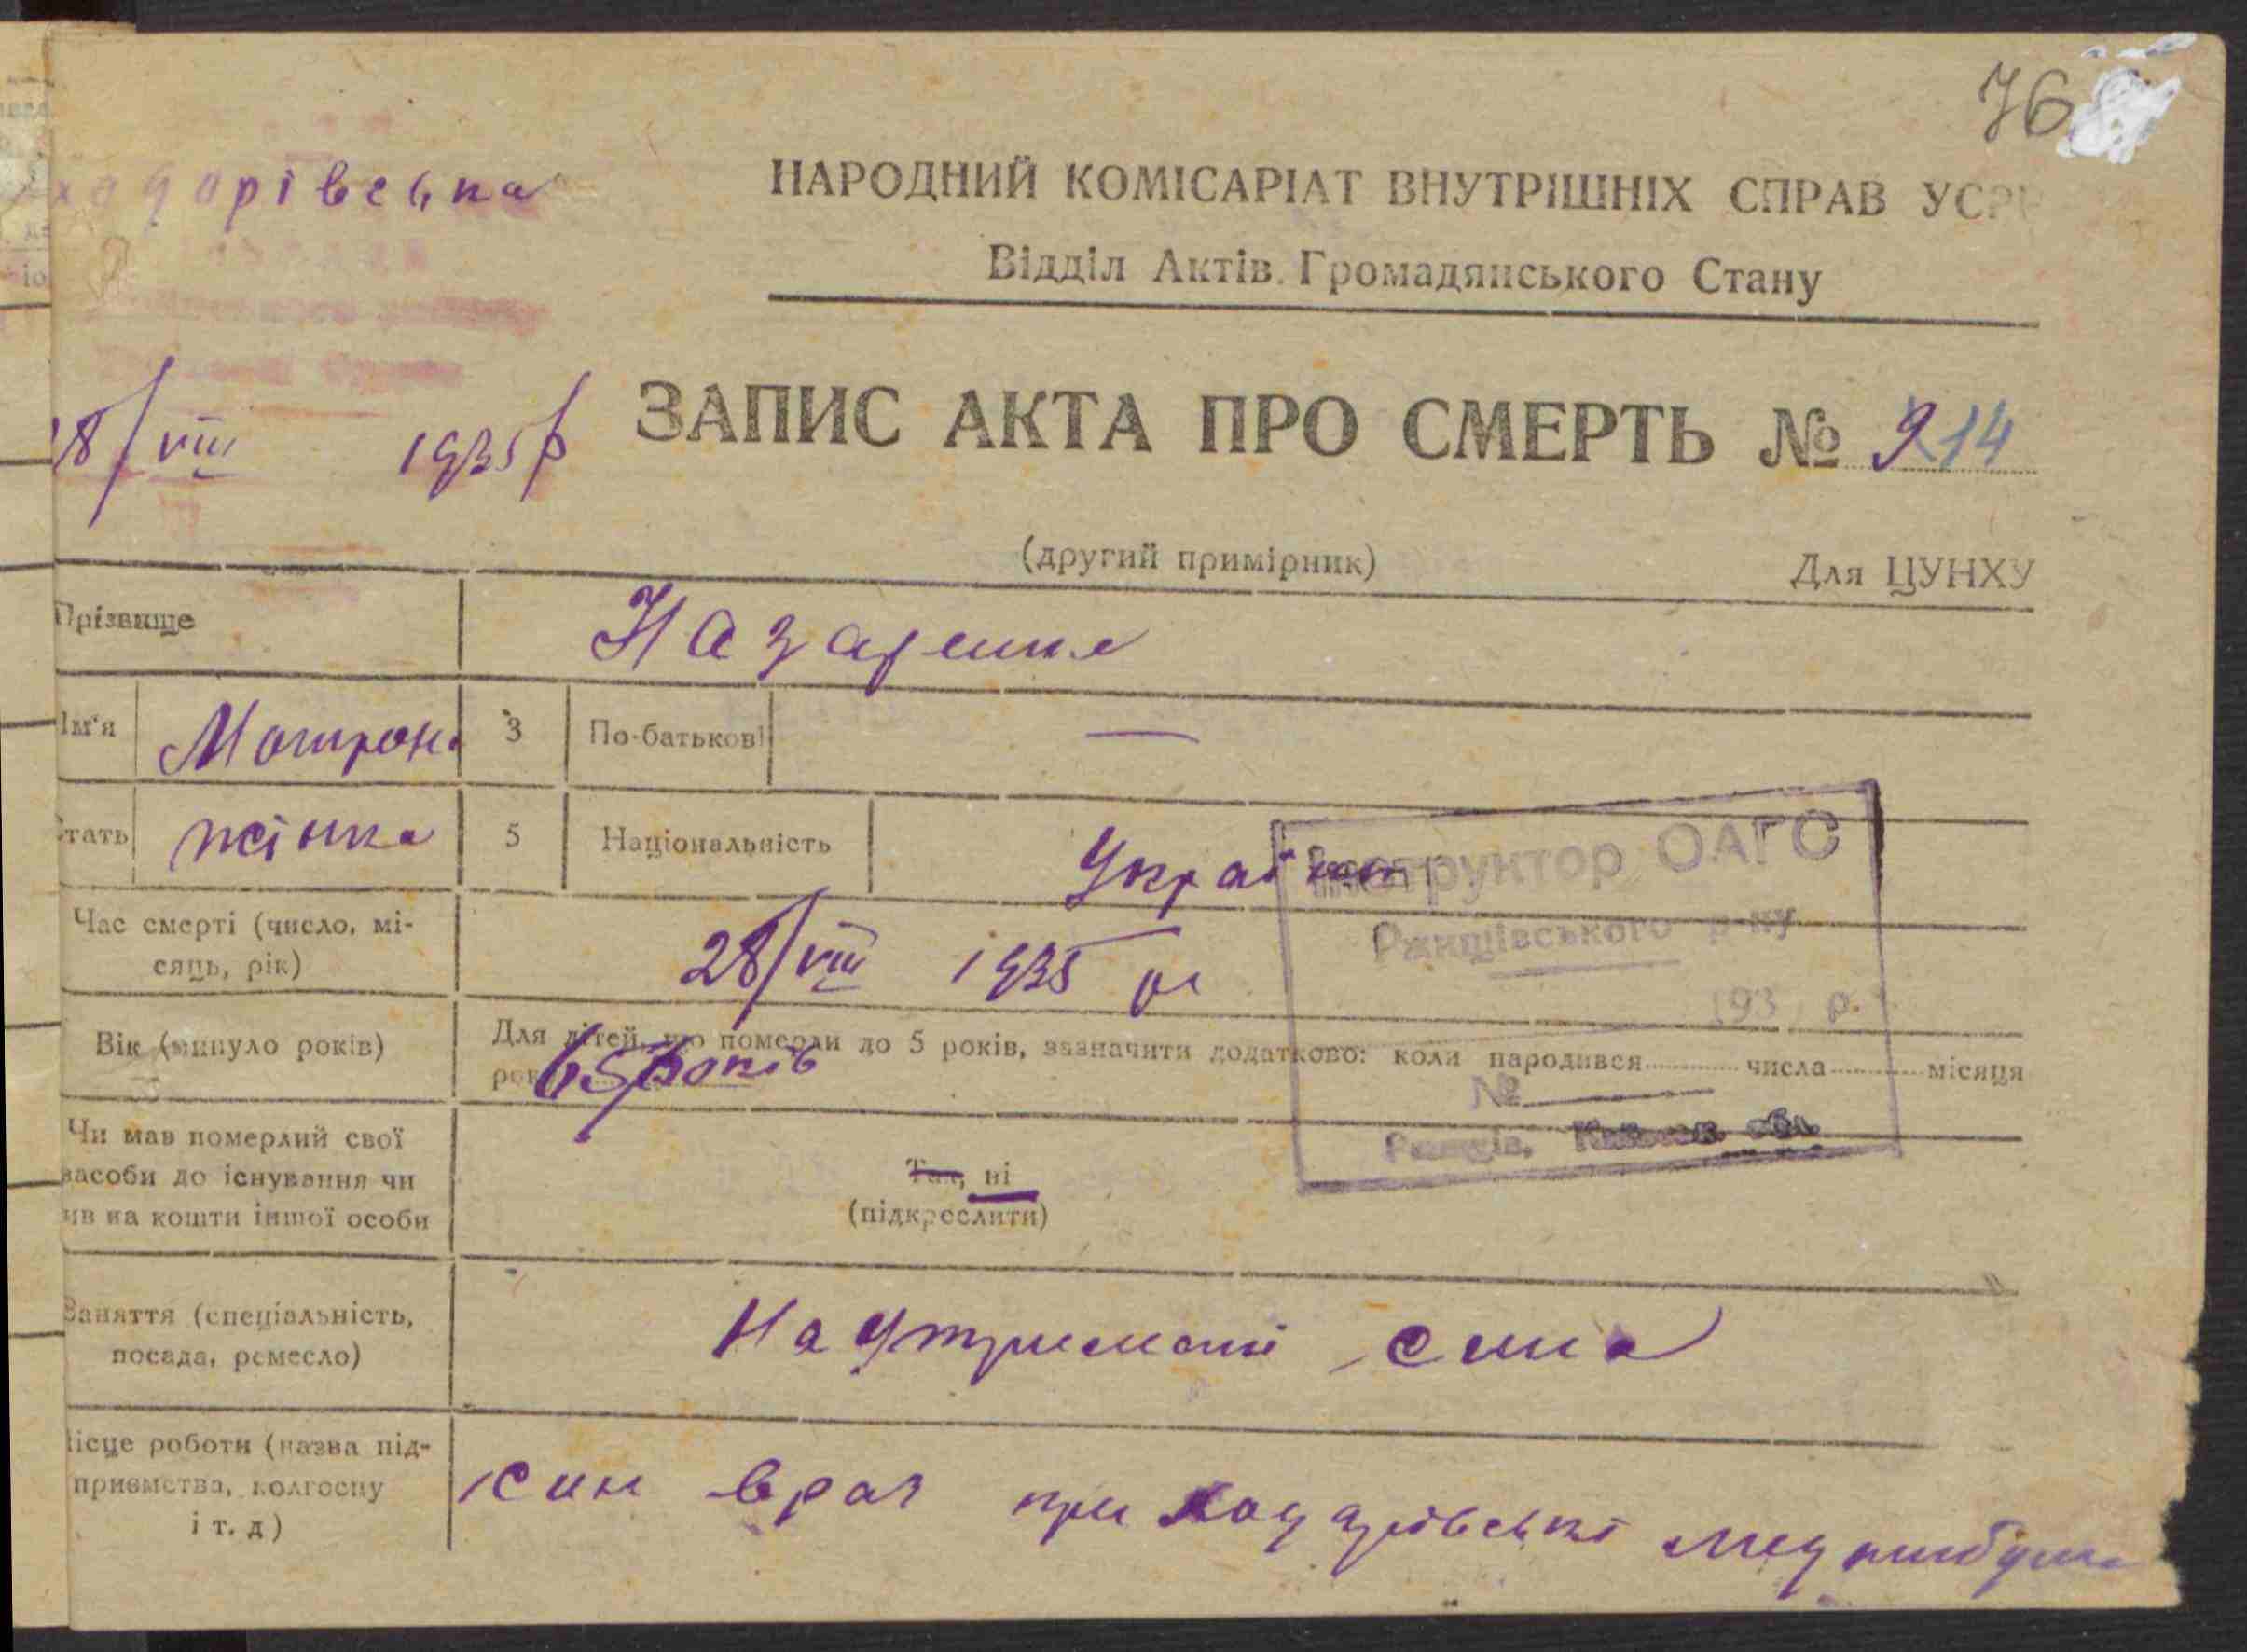 76
ходорівська
НАРОДНИЙ КОМІСАРІАТ ВНУТРІШНІХ СПРАВ УСРР
Відділ Актів Громадянського Стану
28/VIII 1935 р
ЗАПИС АКТА ПРО СМЕРТЬ № 214
(другий примірник)
Для ЦУНХУ
Прізвище Назаренко
Ім'я Мотрона 3 По-батькові —
Стать жінка 5 Національність Українк
Інструктор ОАГС
Ржищівського р-ну
193 р.
№
Ржищів, Київськ. обл.
Час смерті (число, мі-
сяць, рік)
28/VIII 1935 р
Вік (минуло років)
Для дітей, що померли до 5 років, зазначити додатково: коли народився числа місяця
рок
65 років
Чи мав померлий свої
засоби до існування чи
ив на кошти іншої особи
Так, ні
(підкреслити)
Заняття (спеціальність,
посада, ремесло)
На утримані сина
Місце роботи (назва під-
приємства, колгоспу
і т. д)
син врач при ходорівські